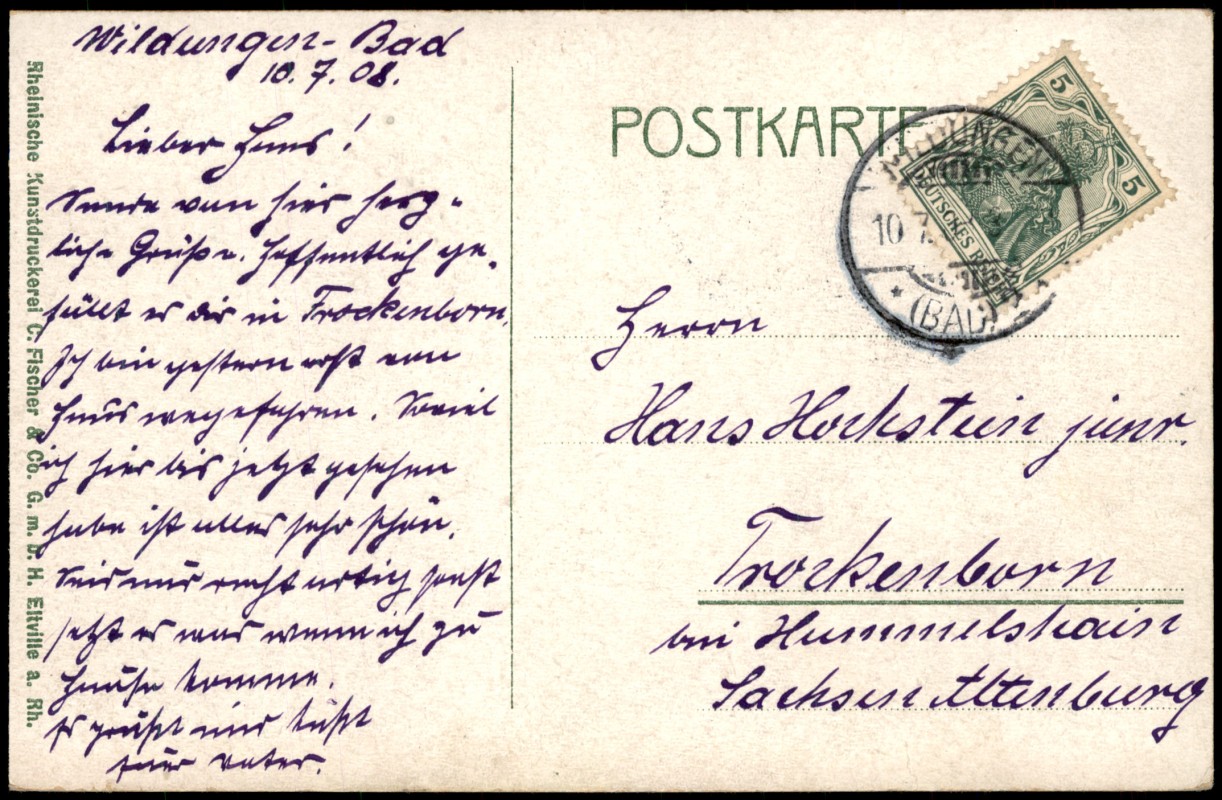 Wildungen-Bad
10.7.08.
Lieber Hans!
Sende von hier herz-
liche Grüße. Hoffentlich ge-
fällt es dir in Trockenborn.
Ich bin gestern erst von
Haus weggefahren. Soviel
ich hier bis jetzt gesehen
habe ist alles sehr schön.
Seid nur recht artig sonst
setzt es was wenn ich zu
Hause komme.
Es grüßt und küßt
Euer Vater.
Rheinische Kunstdruckerei C. Fischer & Co. G. m. b. H. Eltville a. Rh.
POSTKARTE
5
5
DEUTSCHES REICH
WILDUNGEN
10 7.
* (BAD)
Herrn
Hans Hockstein junr.
Trockenborn
bei Hummelshain
Sachsen Altenburg